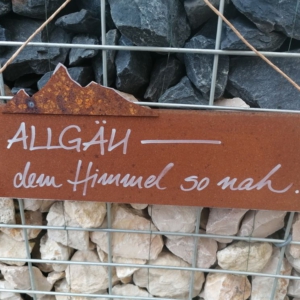 ALLGÄU —
dem Himmel so nah.